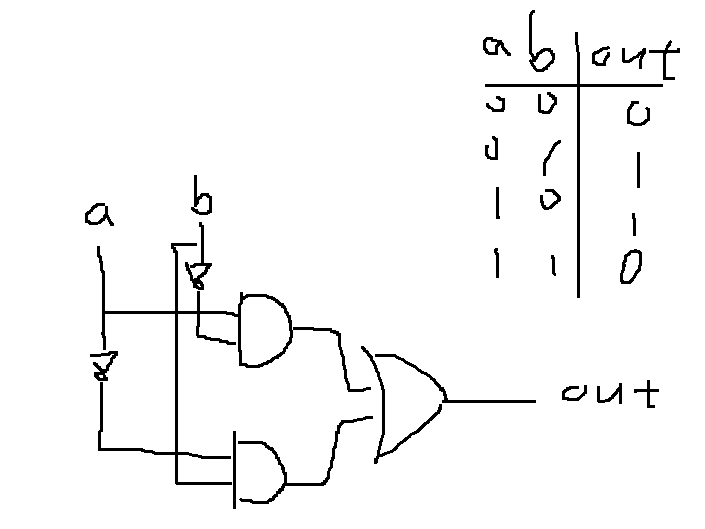 a b out
0 0 0
0 1 1
1 0 1
1 1 0
a b
out